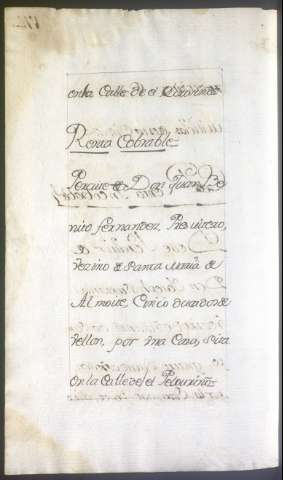 en la Calle de el
Renta Cobrable
Percive de Dn. Juan Be
nito fernandez, Presvitero,
Vezino de Santa Maria de
Almoite, Cinco ducados de
Vellon, por una Casa, sita
en la Calle de el Pelourinho